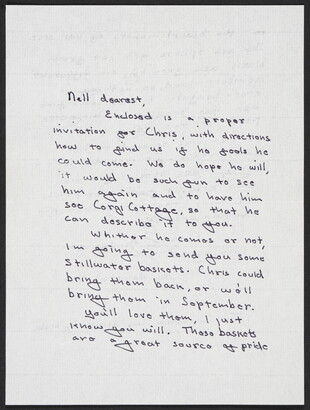 Nell dearest,
Enclosed is a proper
invitation for Chris, with directions
how to find us if he feels he
could come. We do hope he will,
it would be such fun to see
him again and to have him
see Corgi Cottage, so that he
can describe it to you.
Whither he comes or not,
I'm going to send you some
Stillwater baskets. Chris could
bring them back, or we'll
bring them in September.
You'll love them, I just
know you will. Those baskets
are a great source of pride